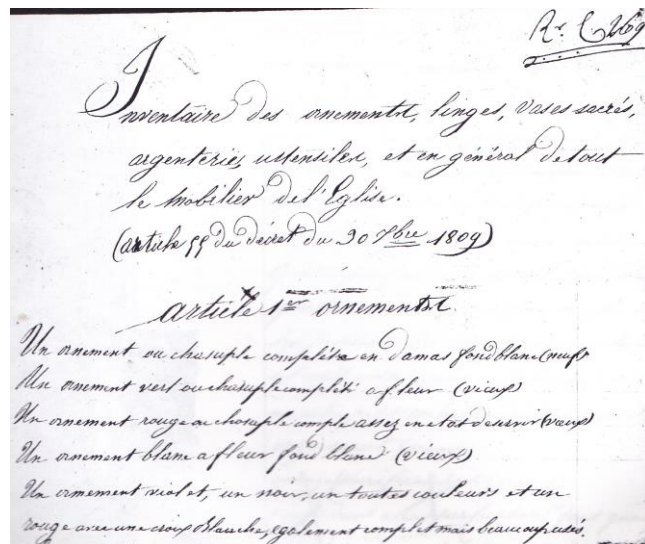 Inventaire des ornements, linges, vases sacrés,
argenteries, ustensiles, et en général de tout
le Mobilier de l'Eglise.
(article 55 du décret du 30 Xbre 1809)
article 1er ornements.
Un ornement ou chasuple complète en damas fond blanc (neuf)
Un ornement vert ou chasuple complèt a fleur (vieux)
Un ornement rouge ou chasuple comple assez en etat de servir (vieux)
Un ornement blanc a fleur fond blanc (vieux)
Un ornement violet, un noir, un toutes couleurs et un
rouge avec une croix Blanche, également complet mais beaucoup usés.